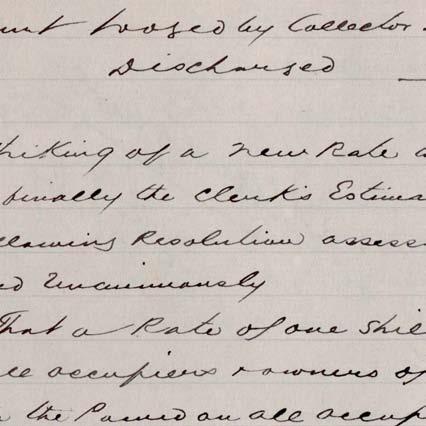 by Collector
Discharged
striking of a new Rate a
finally the Clerk's Estima
llowing Resolution assess
ed Unanimously
That a Rate of one shil
ll occupiers & owners of
the on all occup